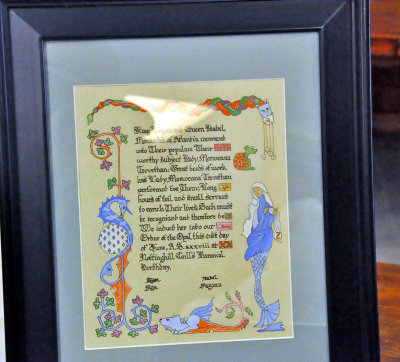 King and Queen Isabel,
of Atlantia comment
unto Their populace Their
worthy subject Lady Morwenna
Trevethan. Great deeds of work
has Lady Morwenna Trevethan
performed for Them. Long
hours of toil, and small services
to enrich Their lives. Such must
be recognized and therefore do
We induct her into our
Order of the Opal, this 21st day
of June, A.S. xxxviii at
Nottinghill Coill's Baronial
Birthday.
Rex Regina